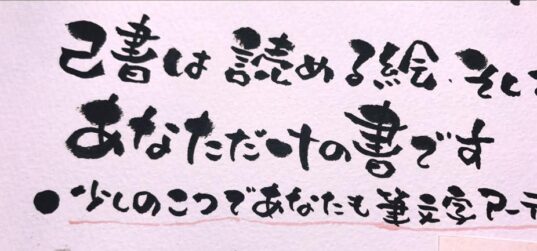 己書は読める絵、そして
あなただけの書です
●少しのこつであなたも筆文字アーテ